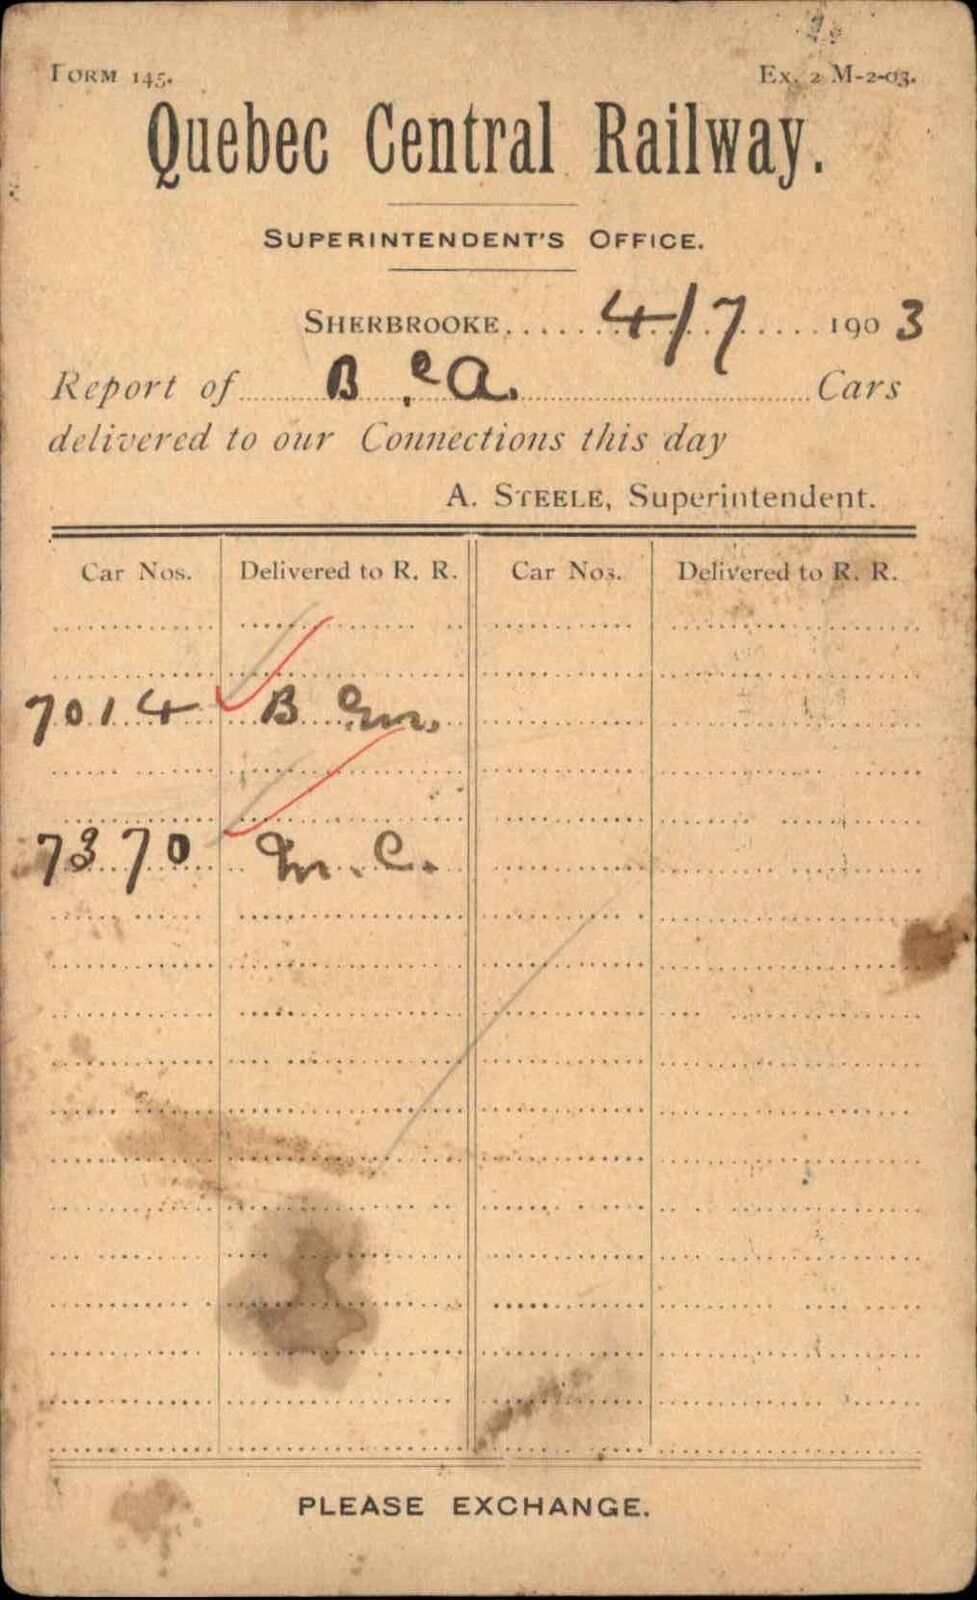 FORM 145.
Ex. 2 M-2-03.
Quebec Central Railway.
SUPERINTENDENT'S OFFICE.
SHERBROOKE 4/7 1903
Report of B & A. Cars
delivered to our Connections this day
A. STEELE, Superintendent.
Car Nos. Delivered to R. R. Car Nos. Delivered to R. R.
7014 B & M.
7370 M. C.
PLEASE EXCHANGE.